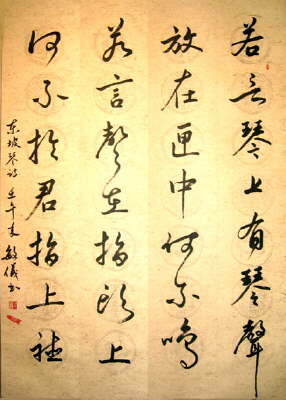 若言琴上有琴聲
放在匣中何不鳴
若言聲在指頭上
何不於君指上聽
东坡琴诗 壬午 敏儀书